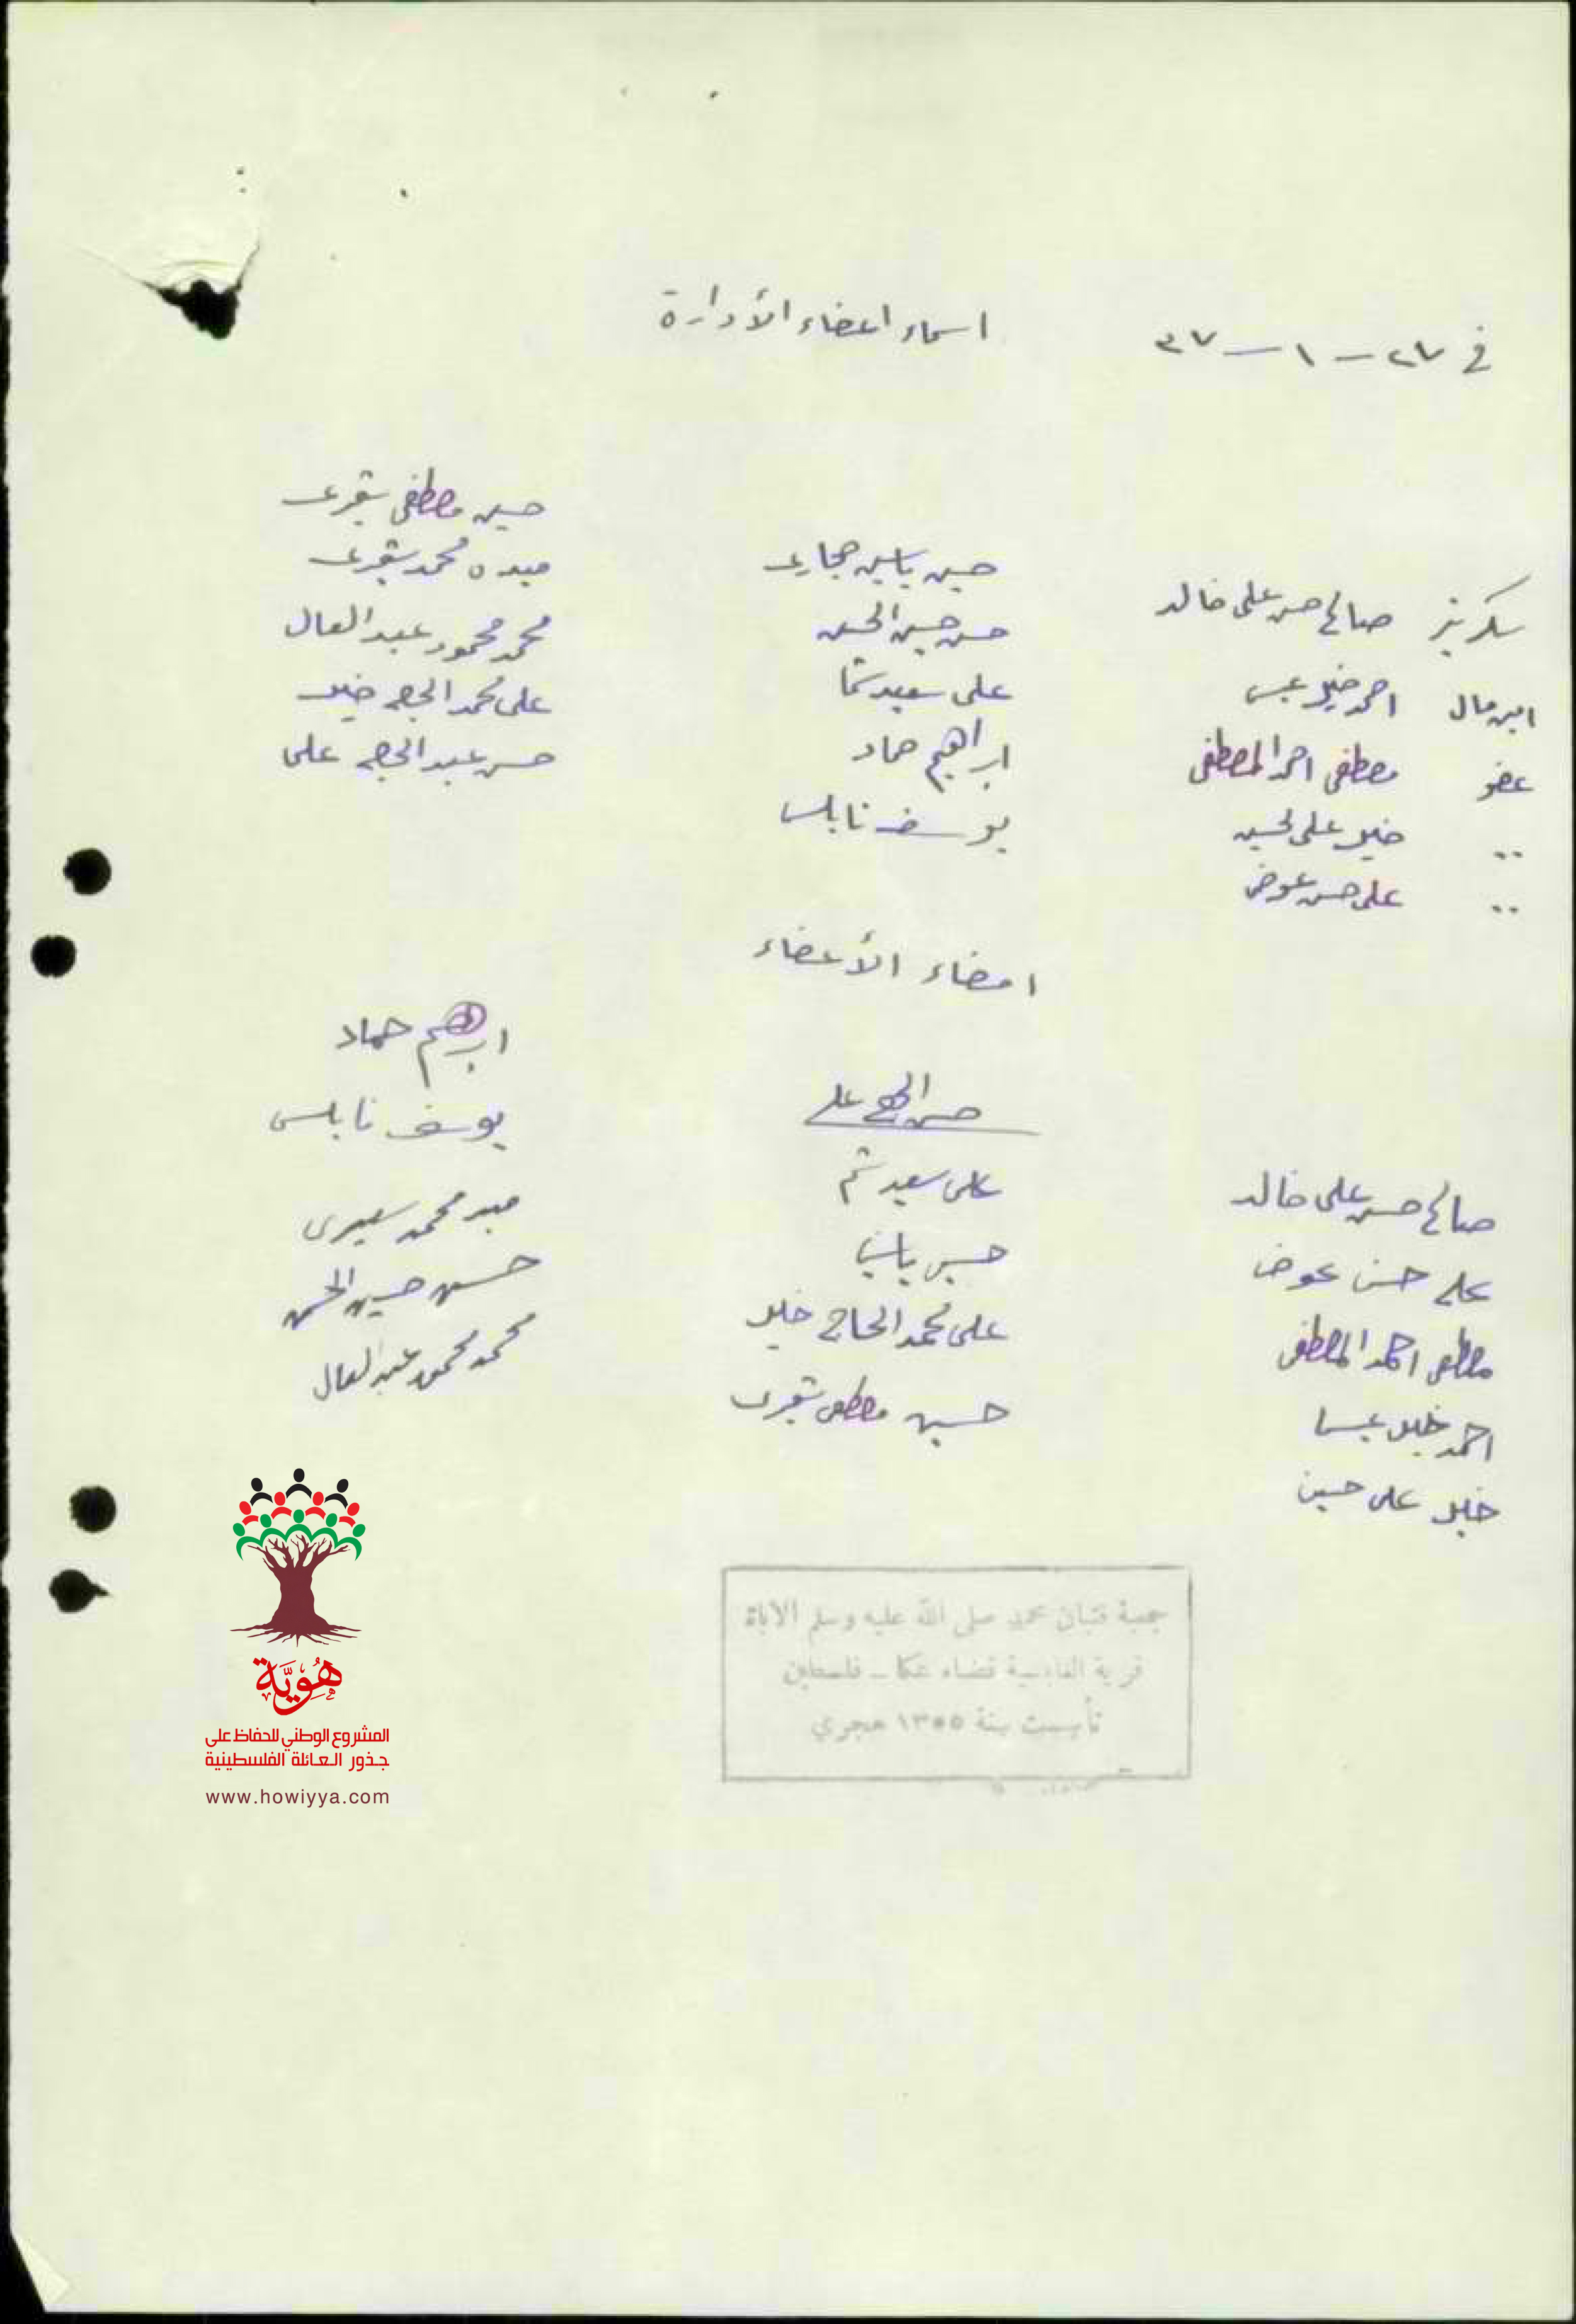 في ٢٧ - ١ - ٣٧
اسماء اعضاء الأدارة
سكرتير صالح حسن على خالد
امين مال احمد خليل عيسى
عضو مصطفى احمد المصطفى
.. خليل على الحسين
.. على حسن عوض
حسين ياسين حجازى
حسن حسين الحسن
على سعيد شما
ابراهيم حماد
يوسف نابلسى
حسين مصطفى شقيرى
عبده محمد شقيرى
محمد محمود عبد العال
على محمد الحاج خليل
حسن عبد الحاج على
امضاء الأعضاء
صالح حسن على خالد
على حسن عوض
مصطفى احمد المصطفى
احمد خليل عيسا
خليل على حسين
حسن الحاج على
على سعيد شم
حسين ياسين
على محمد الحاج خليل
حسين مصطفى شقيرى
ابرهيم حماد
يوسف نابلسى
محمد
حسن حسين الحسن
محمد محمود عبد العال
جمعية فتيان محمد صلى الله عليه وسلم الاباة
قرية الغابسية قضاء عكا - فلسطين
تأسست سنة ١٣٥٥ هجري
هُوِيَّة
المشروع الوطني للحفاظ على
جذور العائلة الفلسطينية
www.howiyya.com